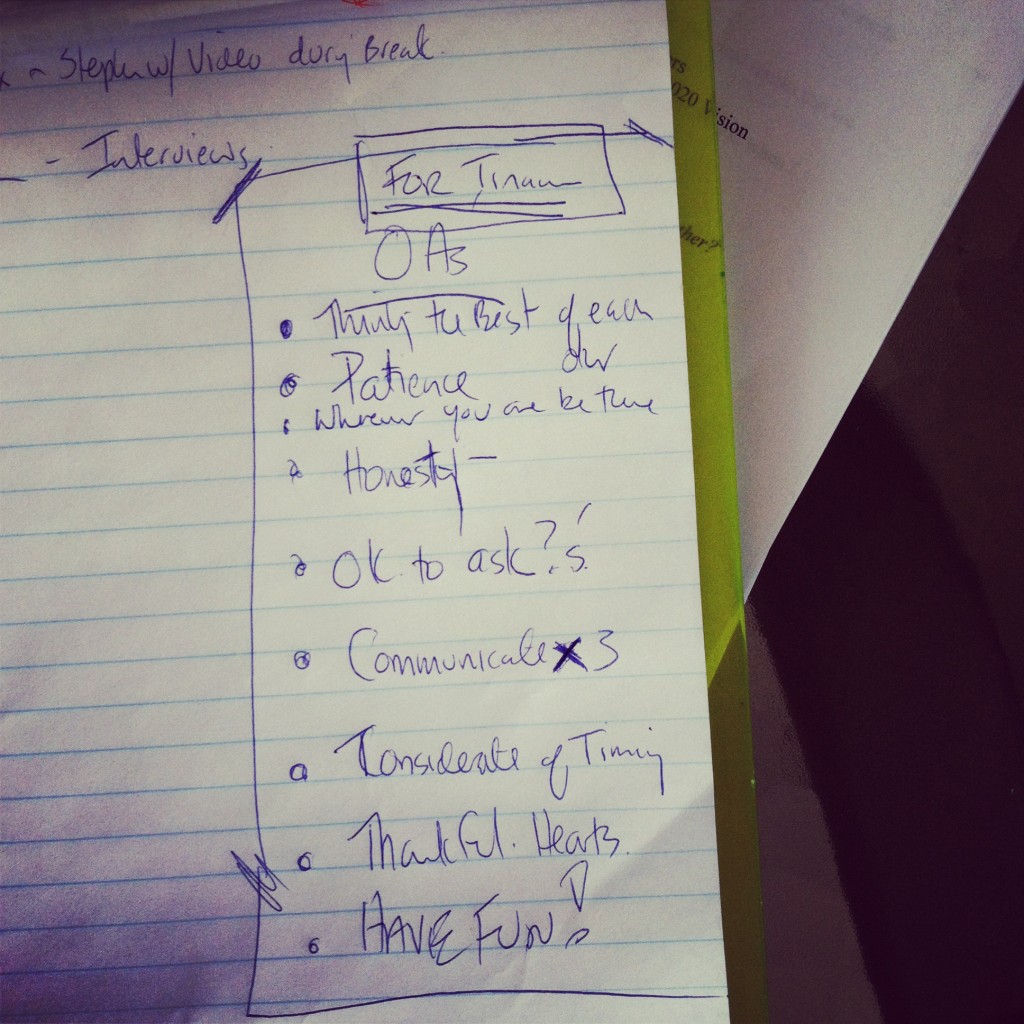 Stephen w/ Video during Break.
- Interviews
For
OAs
• Think the Best of each
other
• Patience
• Wherever you are be there
• Honesty -
• OK to ask ?'s.
• Communicate x 3
• Considerate of Timing
• Thankful. Hearts.
• HAVE FUN!
rs
020 Vision
ther?